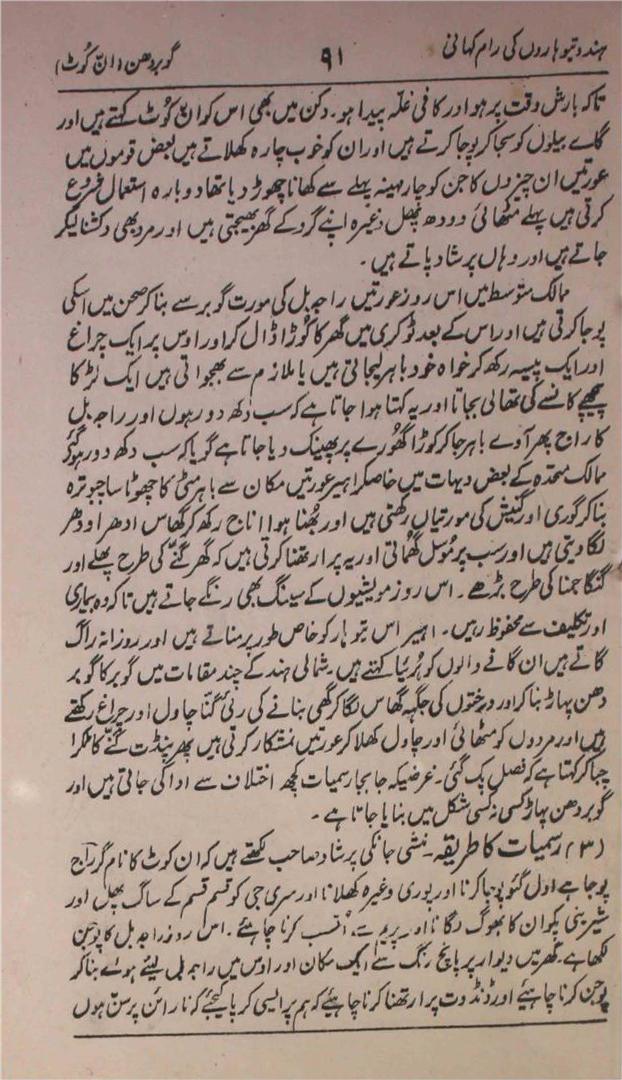 ہندو تیوہاروں کی رام کہانی ۹۱ گوبردھن (ان کُوٹ)
تاکہ بارش وقت پر ہو اور کافی غلّہ پیدا ہو۔ دکن میں بھی اس کو ان کُوٹ کہتے ہیں اور
گائے بیلوں کو سجا کر پوجا کرتے ہیں اور ان کو خوب چارہ کھلاتے ہیں بعض قوموں میں
عورتیں ان چیزوں کا جن کو چار مہینہ پہلے سے کھانا چھوڑ دیا تھا دوبارہ استعمال شروع
کرتی ہیں پہلے مٹھائی دودھ پھل وغیرہ اپنے گرو کے گھر بھیجتی ہیں اور مرد بھی دکشنا لیکر
جاتے ہیں اور وہاں پرشاد پاتے ہیں۔
ممالک متوسط میں اس روز عورتیں راجہ بل کی مورت گوبر سے بنا کر صحن میں اسکی
پوجا کرتی ہیں اور اس کے بعد ٹوکری میں گھر کا کُوڑا ڈال کر اور اوس پر ایک چراغ
اور ایک پیسہ رکھ کر خواہ خود باہر لیجاتی ہیں یا ملازم سے بھجواتی ہیں ایک لڑکا
پیچھے کانسے کی تھالی بجاتا اور یہ کہتا ہوا جاتا ہے کہ سب دکھ دور ہوں اور راجہ بل
کا راج پھر آوے باہر جا کر کوڑا گھُورے پر پھینک دیا جاتا ہے گویا کہ سب دکھ دور ہو گئے
ممالک متحدہ کے بعض دیہات میں خاصکر اہیر عورتیں مکان سے باہر مٹی کا چھوٹا سا چبوترہ
بنا کر گوری اور گنیش کی مورتیاں رکھتی ہیں اور بھُنا ہوا اناج رکھ کر گھاس ادھر اودھر
لگا دیتی ہیں اور سب پر مُوسل گھُماتی اور یہ پرارتھنا کرتی ہیں کہ گھر گنّے کی طرح پھلے اور
گنگا جمنا کی طرح بڑھے۔ اس روز مویشیوں کے سینگ بھی رنگے جاتے ہیں تاکہ وہ بیماری
اور تکلیف سے محفوظ رہیں۔ اہیر اس تیوہار کو خاص طور پر مناتے ہیں اور روزانہ راگ
گاتے ہیں ان گانے والوں کو کہتے ہیں۔ شمالی ہند کے چند مقامات میں گوبر کا گوبر
دھن پہاڑ بنا کر اور درختوں کی جگہ گھاس لگا کر گھی بنانے کی رئی گنّا چاول اور چراغ رکھتے
ہیں اور مردوں کو مٹھائی اور چاول کھلا کر عورتیں نمشکار کرتی ہیں پھر پنڈت گنّے کا ٹکڑا
چبا کر کہتا ہے کہ فصل پک گئی۔ غرضیکہ جا بجا رسمیات کچھ اختلاف سے ادا کی جاتی ہیں اور
گوبردھن پہاڑ کسی نہ کسی شکل میں بنایا جاتا ہے۔
(۳) رسمیات کا طریقہ۔ منشی جانکی پرشاد صاحب لکھتے ہیں کہ ان کوٹ کا نام گرراج
پوجا ہے اول گئو پوجا کرنا اور پوری وغیرہ کھلانا اور سری جی کو قسم قسم کے ساگ پھل اور
شیرینی پکوان کا بھوگ لگانا اور پریم سے اُتسب کرنا چاہئے۔ اس روز راجہ بل کا پوجن
لکھا ہے گھر میں دیوار پر پانچ رنگ سے ایک مکان اور اوس میں راجہ بلی لیٹے ہوئے بنا کر
پوجن کرنا چاہئے اور ڈنڈوت پرارتھنا کرنا چاہئے کہ ہم پر ایسی کرپا کیجئے کہ نارائن پرسن ہوں